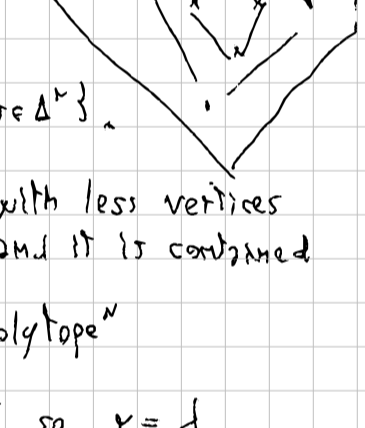 ∈ Δᴺ }.
with less vertices
and it is contained
olytope"
so r = d